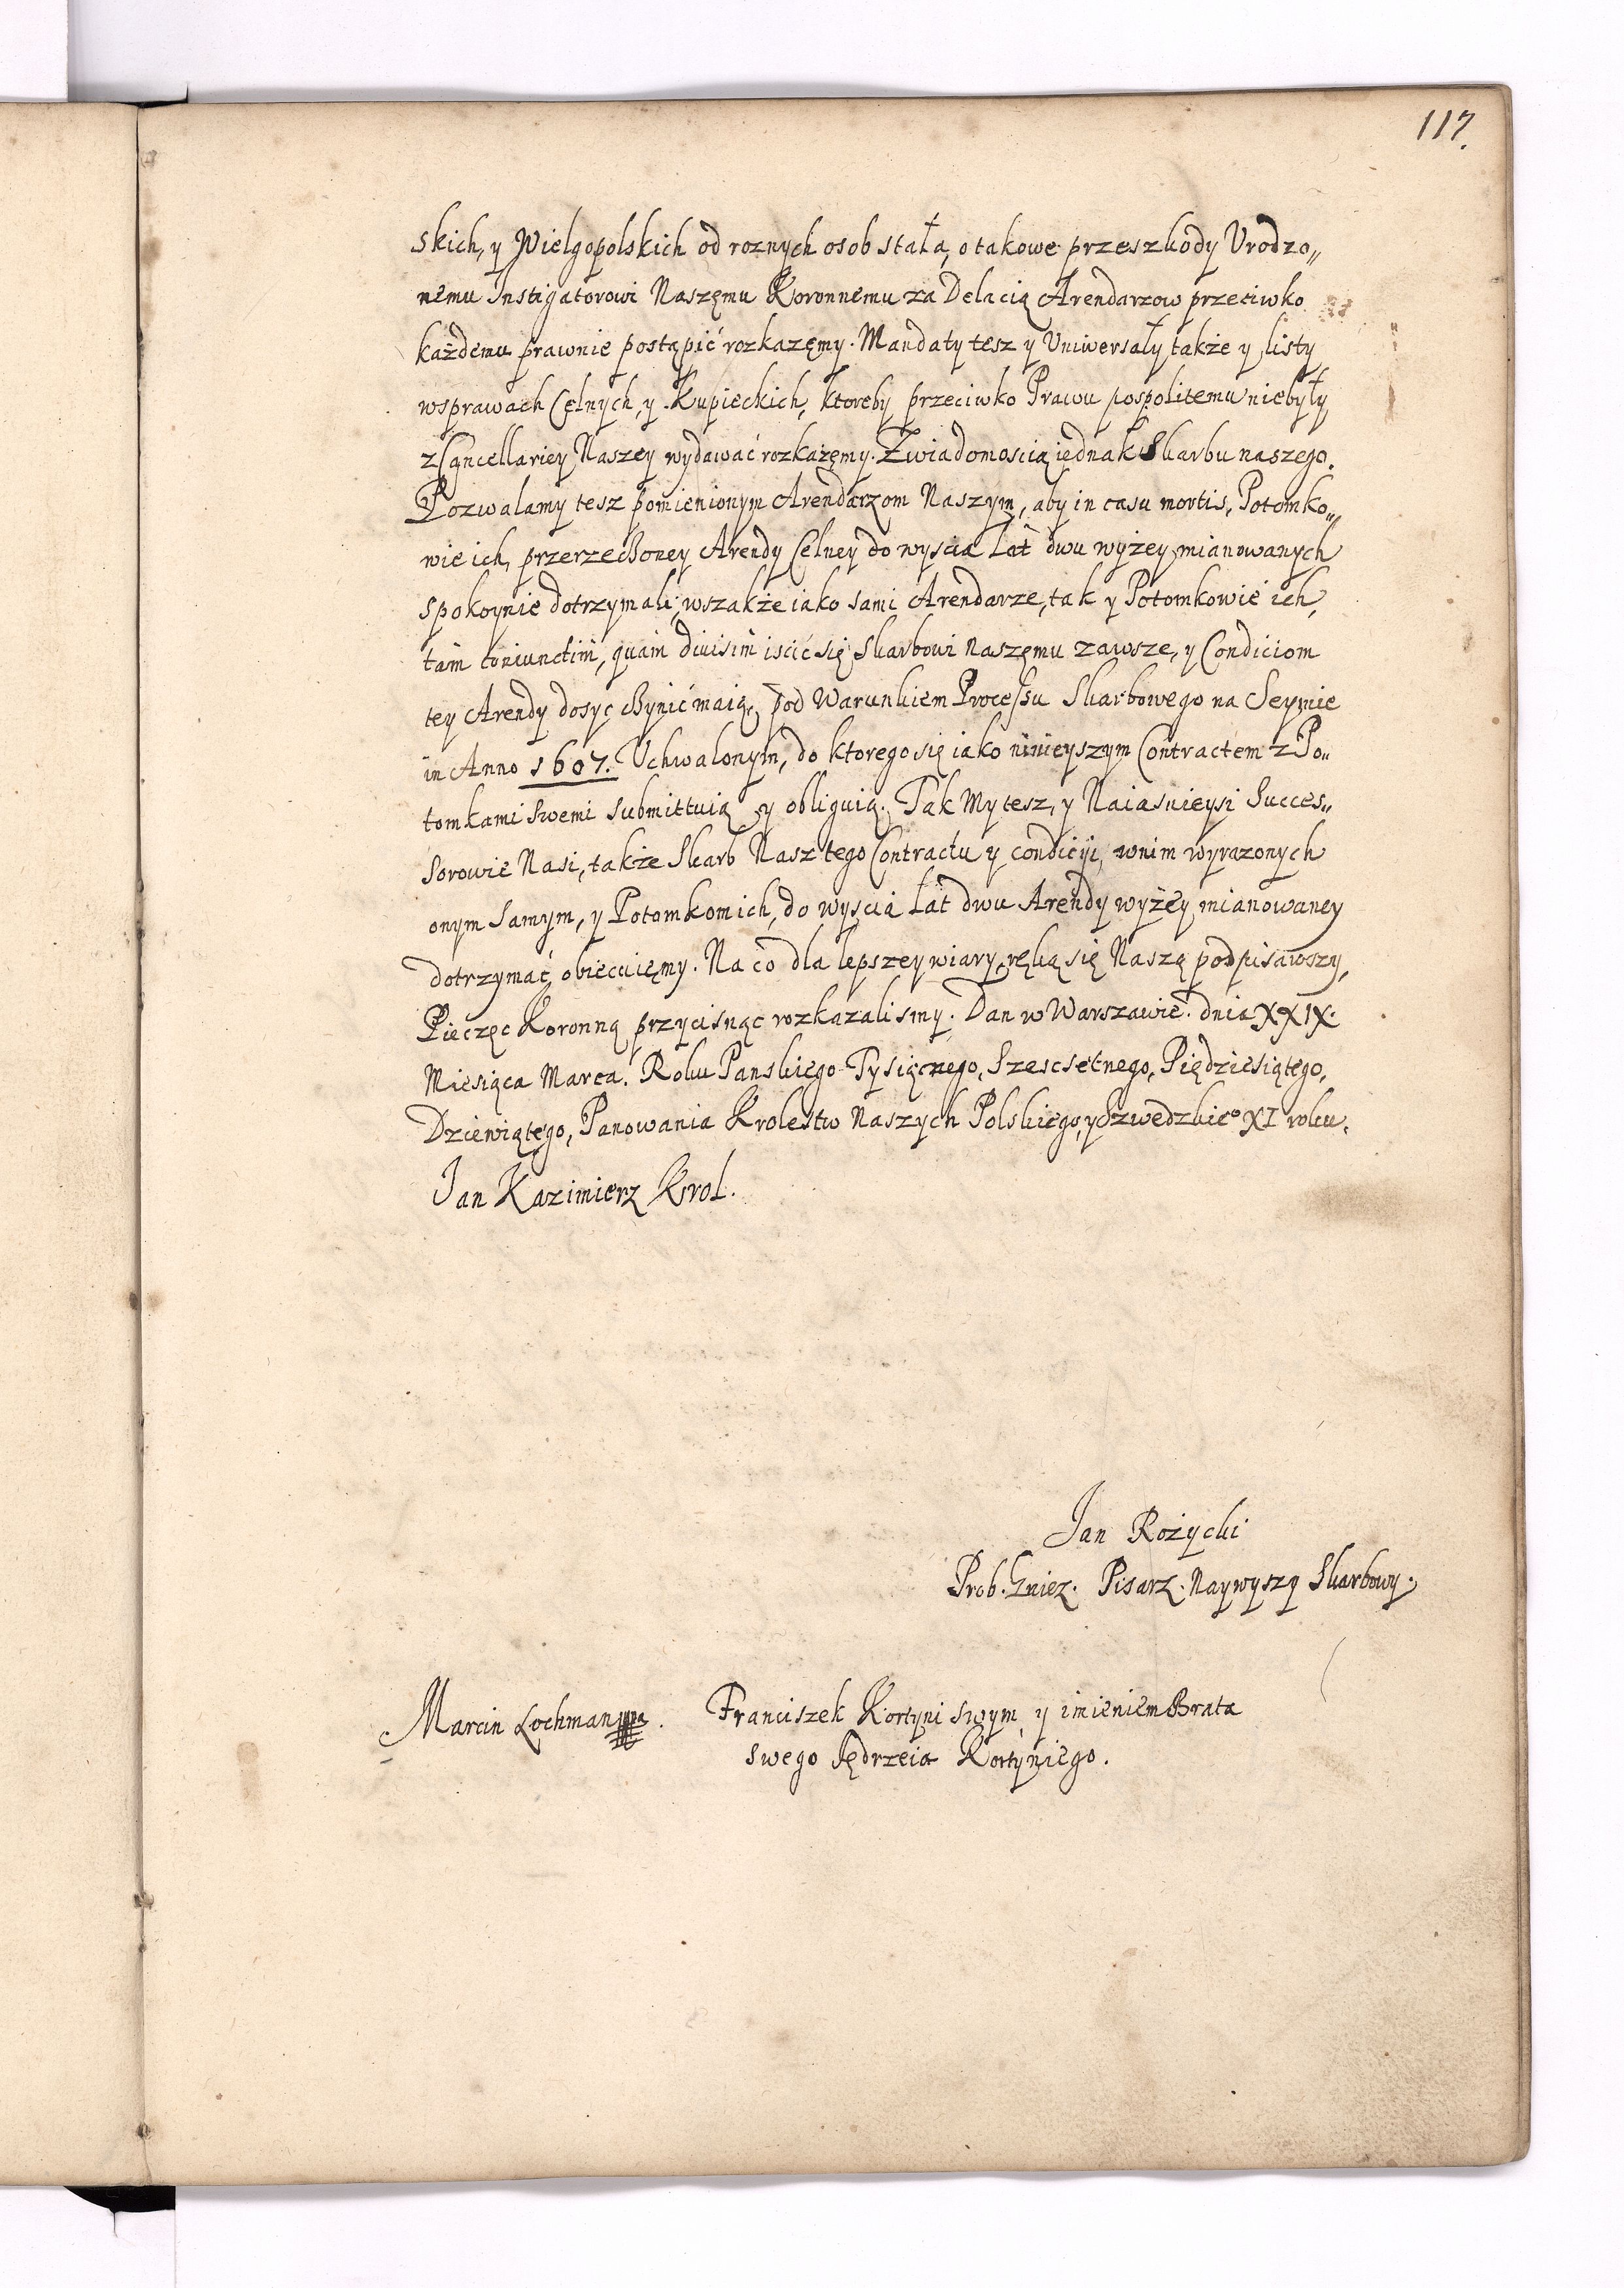 117.
skich, y Wielgopolskich od roznych osob stała, o takowe przeszkody Vrodzo„
nemu Instigatorowi Naszęmu Koronnemu za Delacią Arendarzow przeciwko
każdemu prawnie postąpić rozkazęmy. Mandaty tesz y Uniwersały także y listy
wsprawach Cęlnych, y Kupieckich, ktoreby przeciwko Prawu pospolitemu niebyły
z Cancellariey Naszey wydawać rozkażęmy. Zwiadomoscią iędnak Skarbu naszego.
Pozwalamy tesz pomienionym Arendarzom Naszym, aby in casu mortis, Potomko„
wie ich, przerzeczoney Arendy Celney do wyscia lat dwu wyżey mianowanych
spokoynie dotrzymali, wszakże iako sami Arendarze, tak y Potomkowie ich,
tam coniunctim, quam diuisim iscić się Skarbowi Naszęmu zawsze, y Condiciom
tey Arendy dosyc czynić maią, pod Warunkiem Processu Skarbowego na Seymie
in Anno 1607. Uchwalonym, do ktorego się iako ninieyszym Contractem z Po„
tomkami swemi submittuią y obliguią. Tak My tesz, y Naiasnieysi Succes„
sorowie Nasi, także Skarb Nasz tego Contractu y condiciji, wnim wyrazonych
onym samym, y Potomkom ich, do wyscia lat dwu Arendy wyżey mianowaney
dotrzymać obiecuięmy. Na co dla lepszey wiary, ręką się Naszą podpisawszy,
Pieczęc Koronną przycisnąc rozkazalismy. Dan w Warszawie. dnia XXIX.
Miesiąca Marca. Roku Panskiego Tysiącnego, Szescsetnego, Piędziesiątego,
Dziewiątego, Panowania Krolestw Naszych Polskiego, y Szwedzkie° XI roku.
Jan Kazimierz Krol.
Jan Rożycki
Prob. Gniez. Pisarz. Naywyszy Skarbowy.
Marcin Lochman mpa.
Franciszek Kortyni swym y imieniem Brata
swego Jędrzeia Kortyniego.